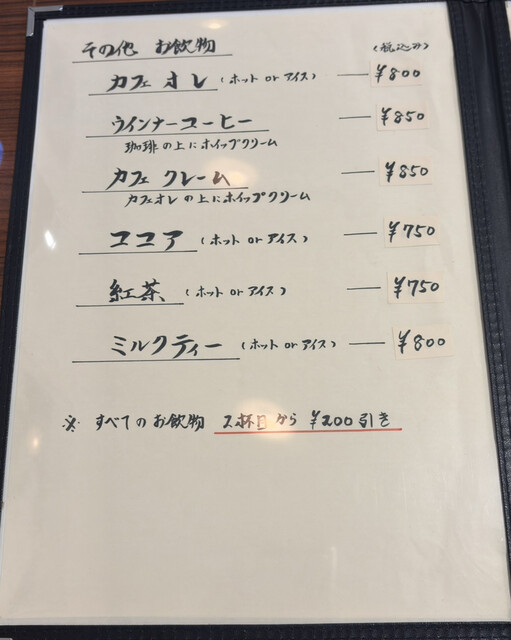 その他 お飲物 (税込み)
カフェオレ (ホット or アイス) — ¥800
ウインナーコーヒー — ¥850
珈琲の上にホイップクリーム
カフェ クレーム — ¥850
カフェオレの上にホイップクリーム
ココア (ホット or アイス) — ¥750
紅茶 (ホット or アイス) — ¥750
ミルクティー (ホット or アイス) — ¥800
※ すべてのお飲物 2杯目から ¥200引き